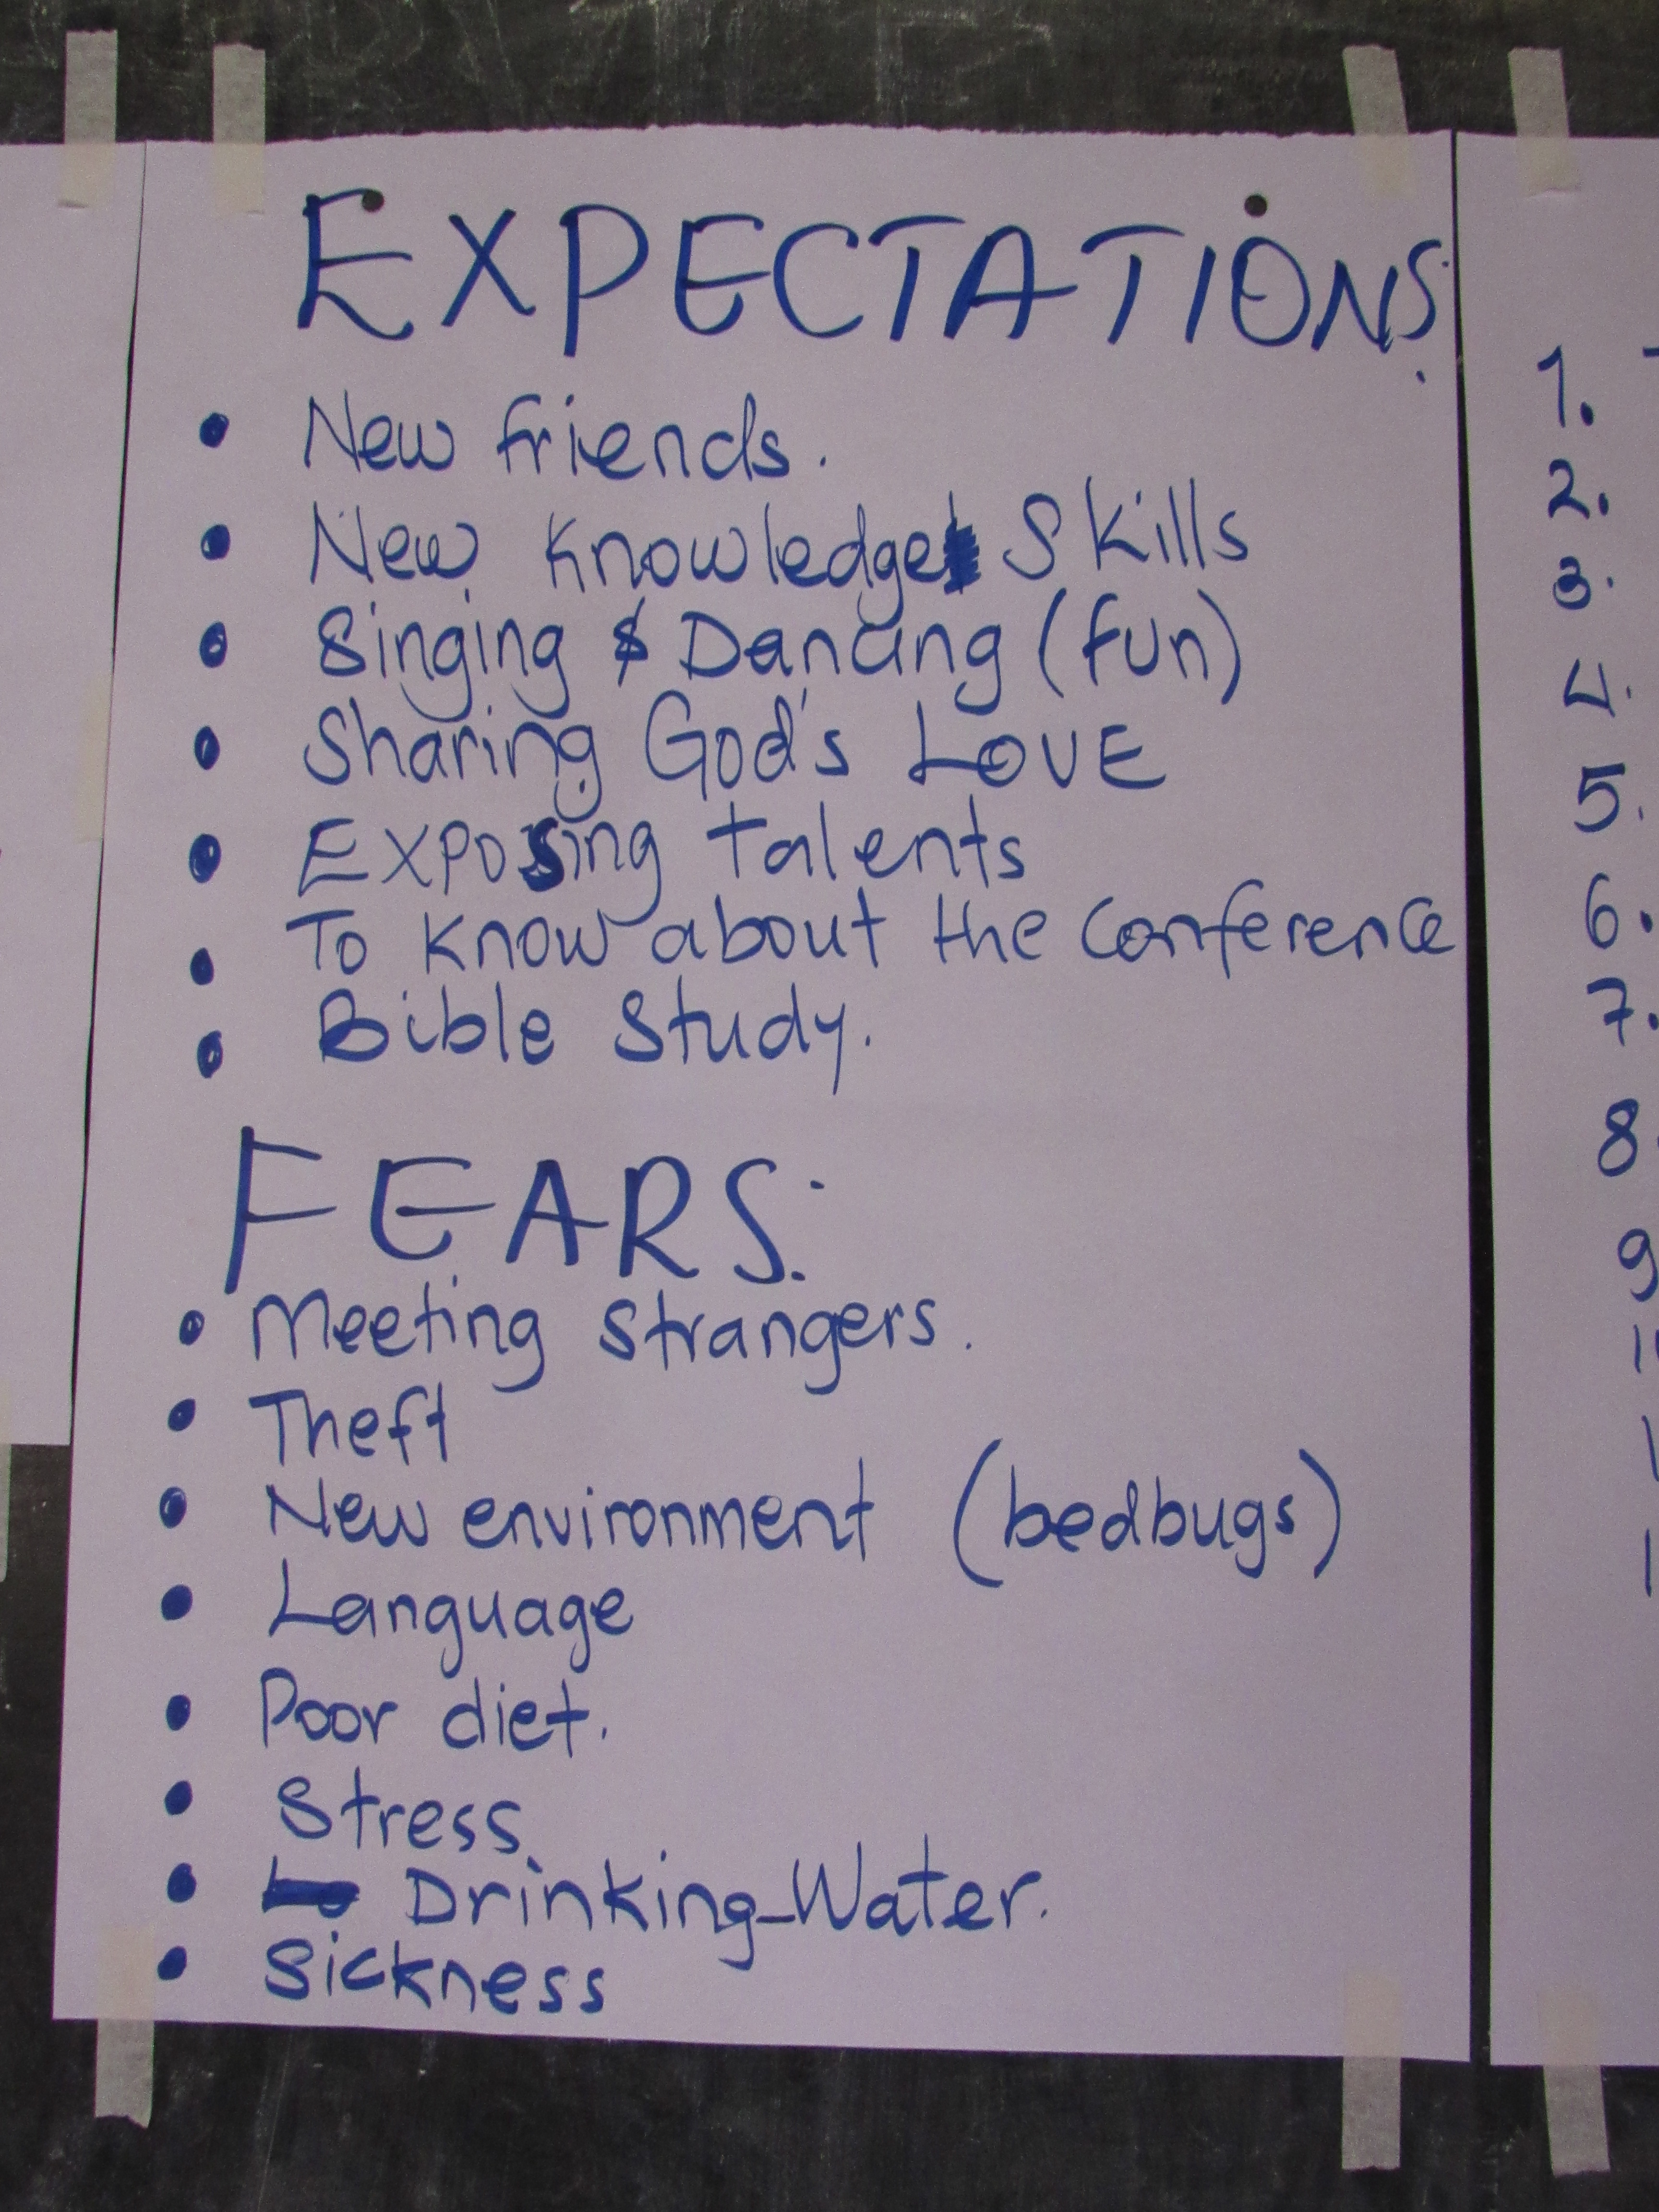 EXPECTATIONS:
• New friends.
• New Knowledge Skills
• Singing & Dancing (fun)
• Sharing God's LOVE
• Exposing talents
• To Know about the Conference
• Bible Study.
FEARS:
• Meeting Strangers.
• Theft
• New environment (bedbugs)
• Language
• Poor diet.
• Stress
• Drinking-Water.
• Sickness
1.
2.
3.
4.
5.
6.
7.
8.
9